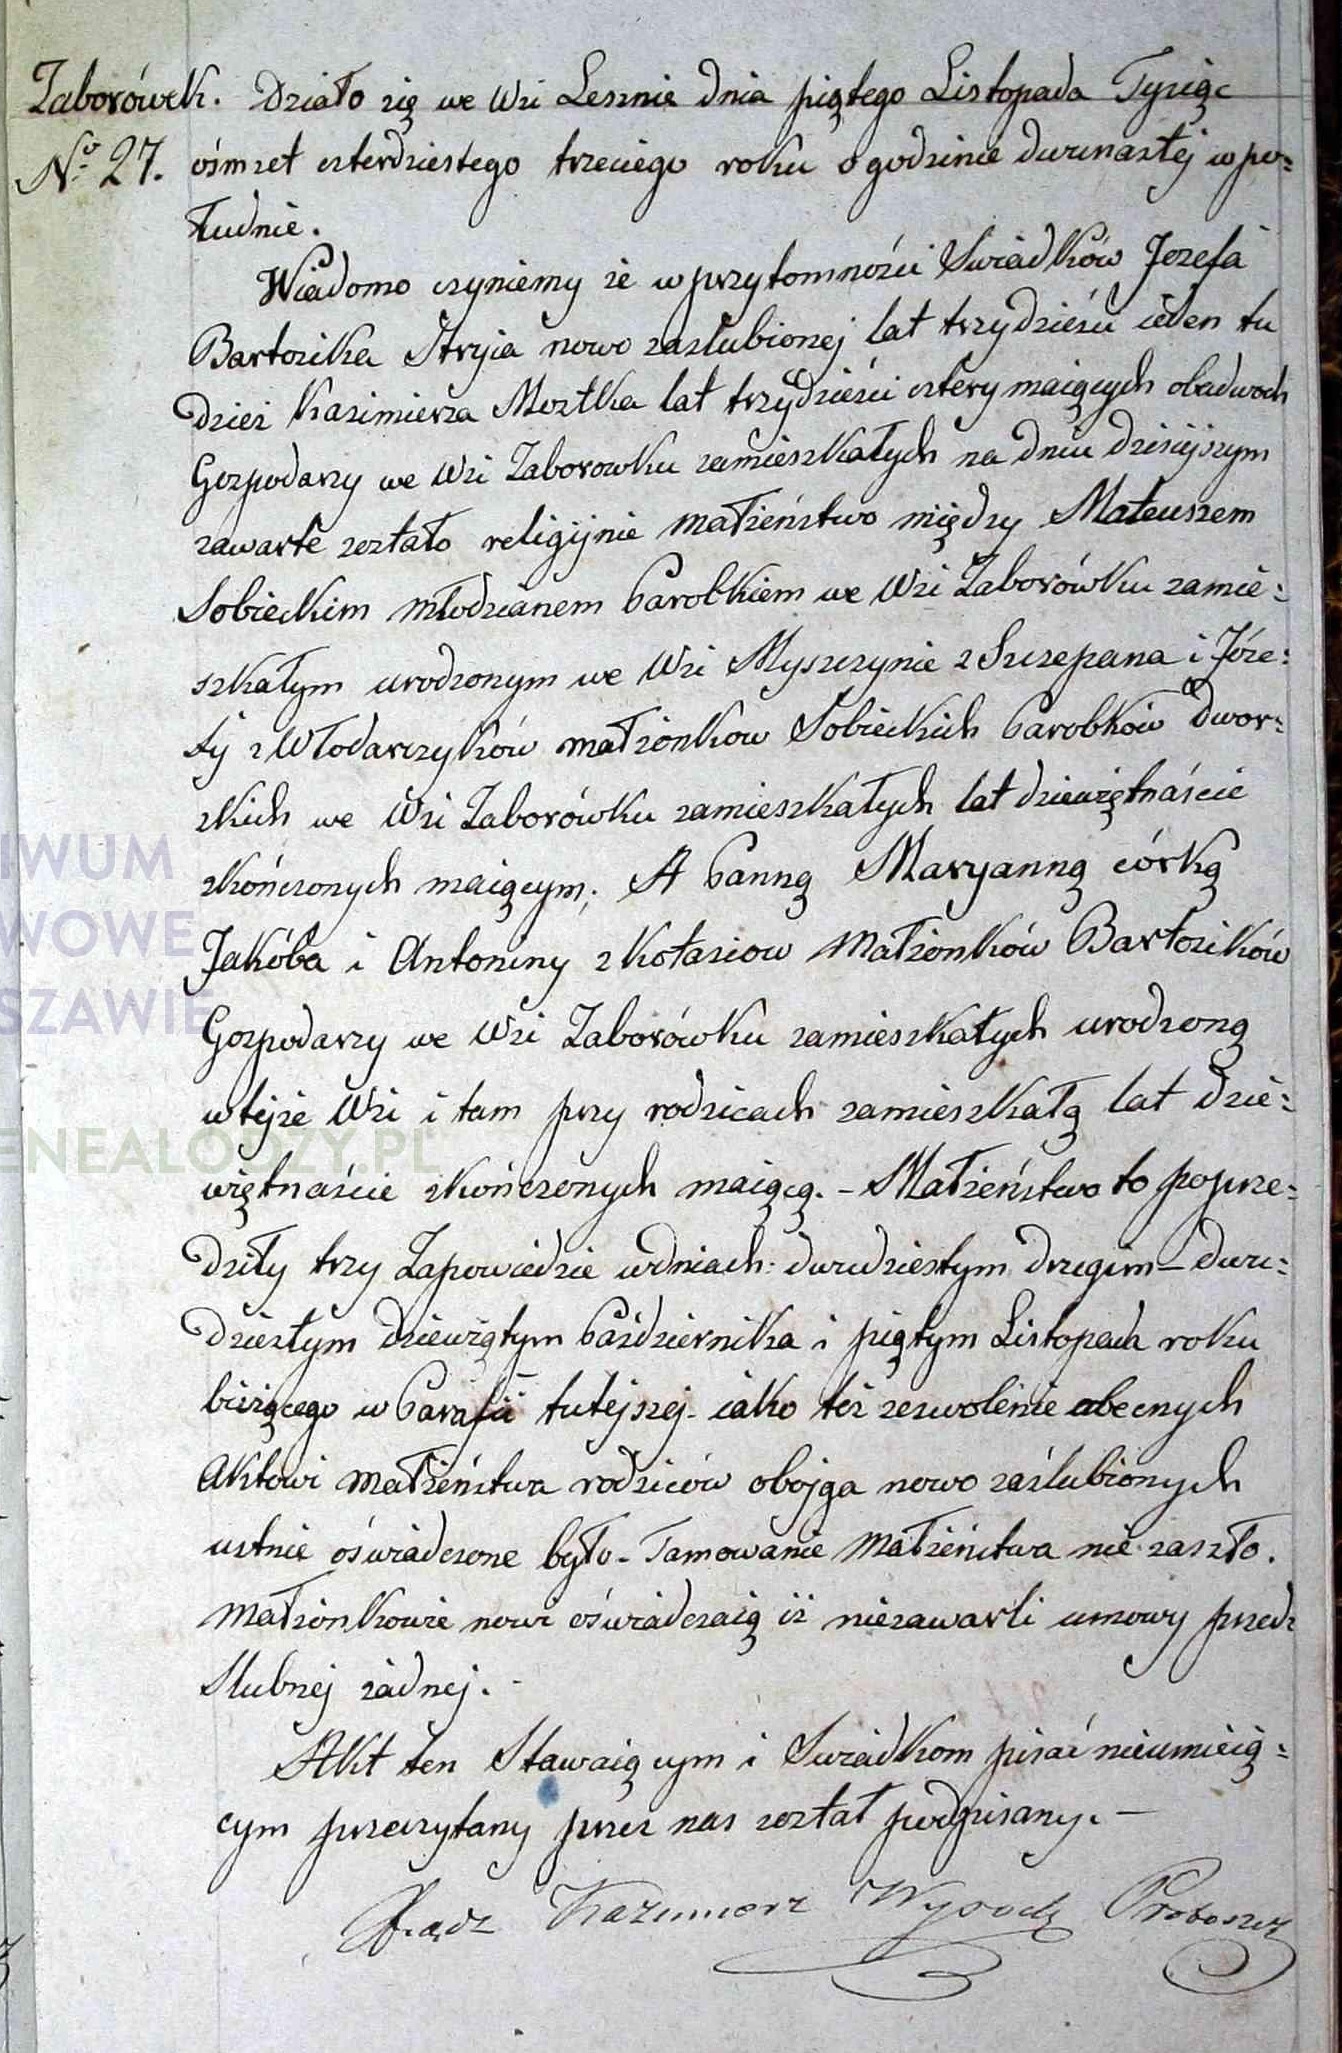 Zaborówek. Działo się we Wsi Lesznie dnia piątego Listopada Tysiąc
No 27. ośmset czterdziestego trzeciego roku o godzinie dwunastej w po=
łudnie.
Wiadomo czyniemy że w przytomności Swiadków Jozefa
Bartosika Stryia nowo zaslubionej lat trzydzieści ieden tu
dzież Kazimierza Mostka lat trzydzieści cztery maiących obudwoch
Gospodarzy we Wsi Zaborowku zamieszkałych na dniu dzisiejszym
zawarte zostało religijnie małżeństwo między Mateuszem
Sobieckim młodzianem Parobkiem we Wsi Zaborówku zamie=
szkałym urodzonym we Wsi Myszczynie z Szczepana i Józe=
fy z Włodarczyków małżonkow Sobieckich Parobków dwor=
skich we Wsi Zaborówku zamieszkałych lat dziewiętnáście
skończonych maiącym; A Panną Maryanną córką
Jakóba i Antoniny z Kotasiow Małżonków Bartosików
Gospodarzy we Wsi Zaborówku zamieszkałych urodzoną
w tejże Wsi i tam przy rodzicach zamieszkałą lat dzie=
więtnaście skończonych maiącą. - Małżeństwo to poprze=
dziły trzy Zapowiedzie w dniach: dwudziestym drugim - dwu=
dziestym dziewiątym Październiká i piątym Listopada roku
bieżącego w Parafii tutejszej - iako też zezwolenie obecnych
Aktowi Małżeństwa rodziców obojga nowo zaślubionych
ustnie oświadczone było - Tamowanie Małżeństwa nie zaszło.
Małżonkowie nowi oświadczaią iż niezawarli umowy przed
Slubnej żadnej. -
Akt ten Stawaiącym i Swiadkom pisać nieumieią=
cym przeczytany przez nas został podpisany. -
Xiądz Kazimierz Wysocki Proboszcz
IWUM
WOWE
SZAWIE
ENEALODZY.PL